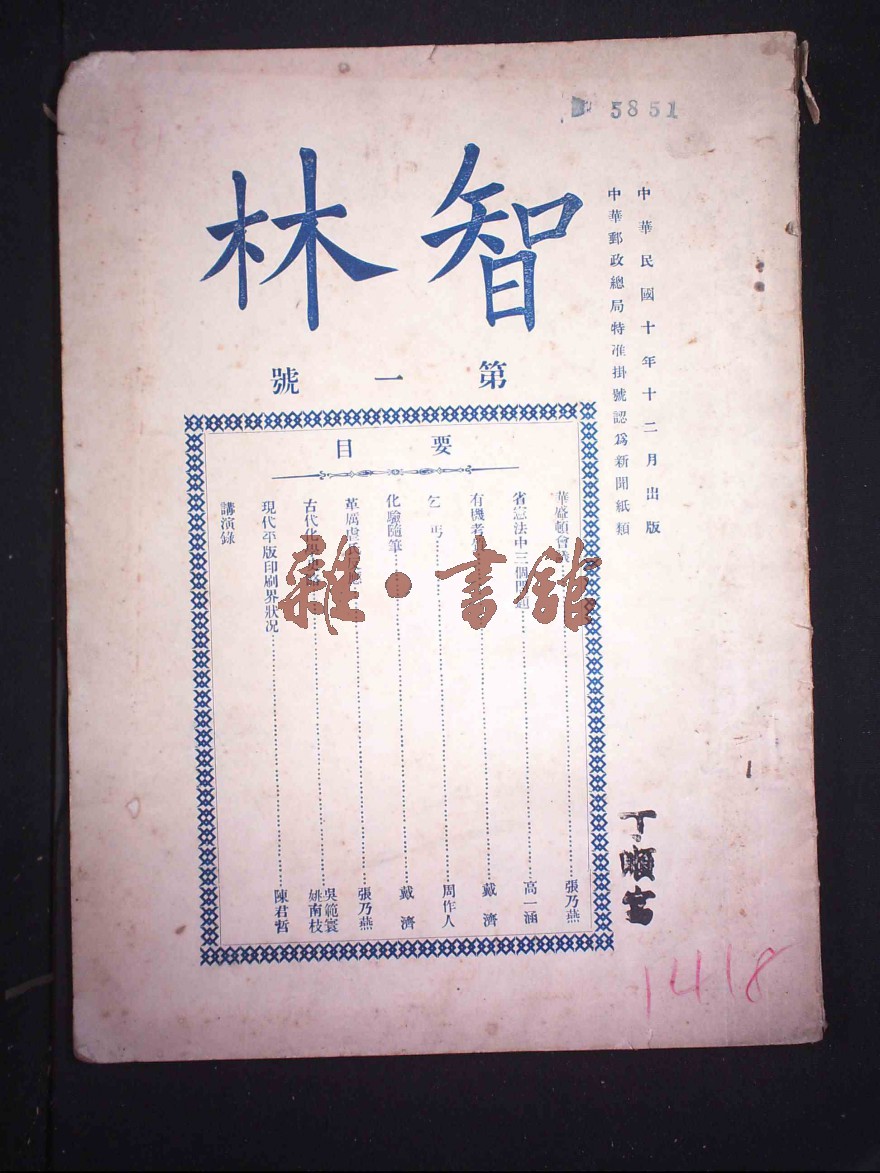 5851
中華民國十年十二月出版
中華郵政總局特准掛號認爲新聞紙類
智林
第一號
要目
華盛頓會議 張乃燕
省憲法中三個問題 高一涵
有機 戴濟
乞丐 周作人
化驗隨筆 戴濟
革厲 張乃燕
古代化學史略 吳範寰 姚南枝
現代平版印刷界狀况 陳君哲
講演錄
雜·書館
1418